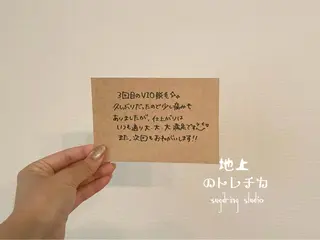 3回目のVIO脱毛☆
久しぶりだったので少し痛みも
ありましたが、仕上がりは
いつも通り大大大満足です
また、次回もおねがいします!!
地上
のトレチカ
sugaring studio